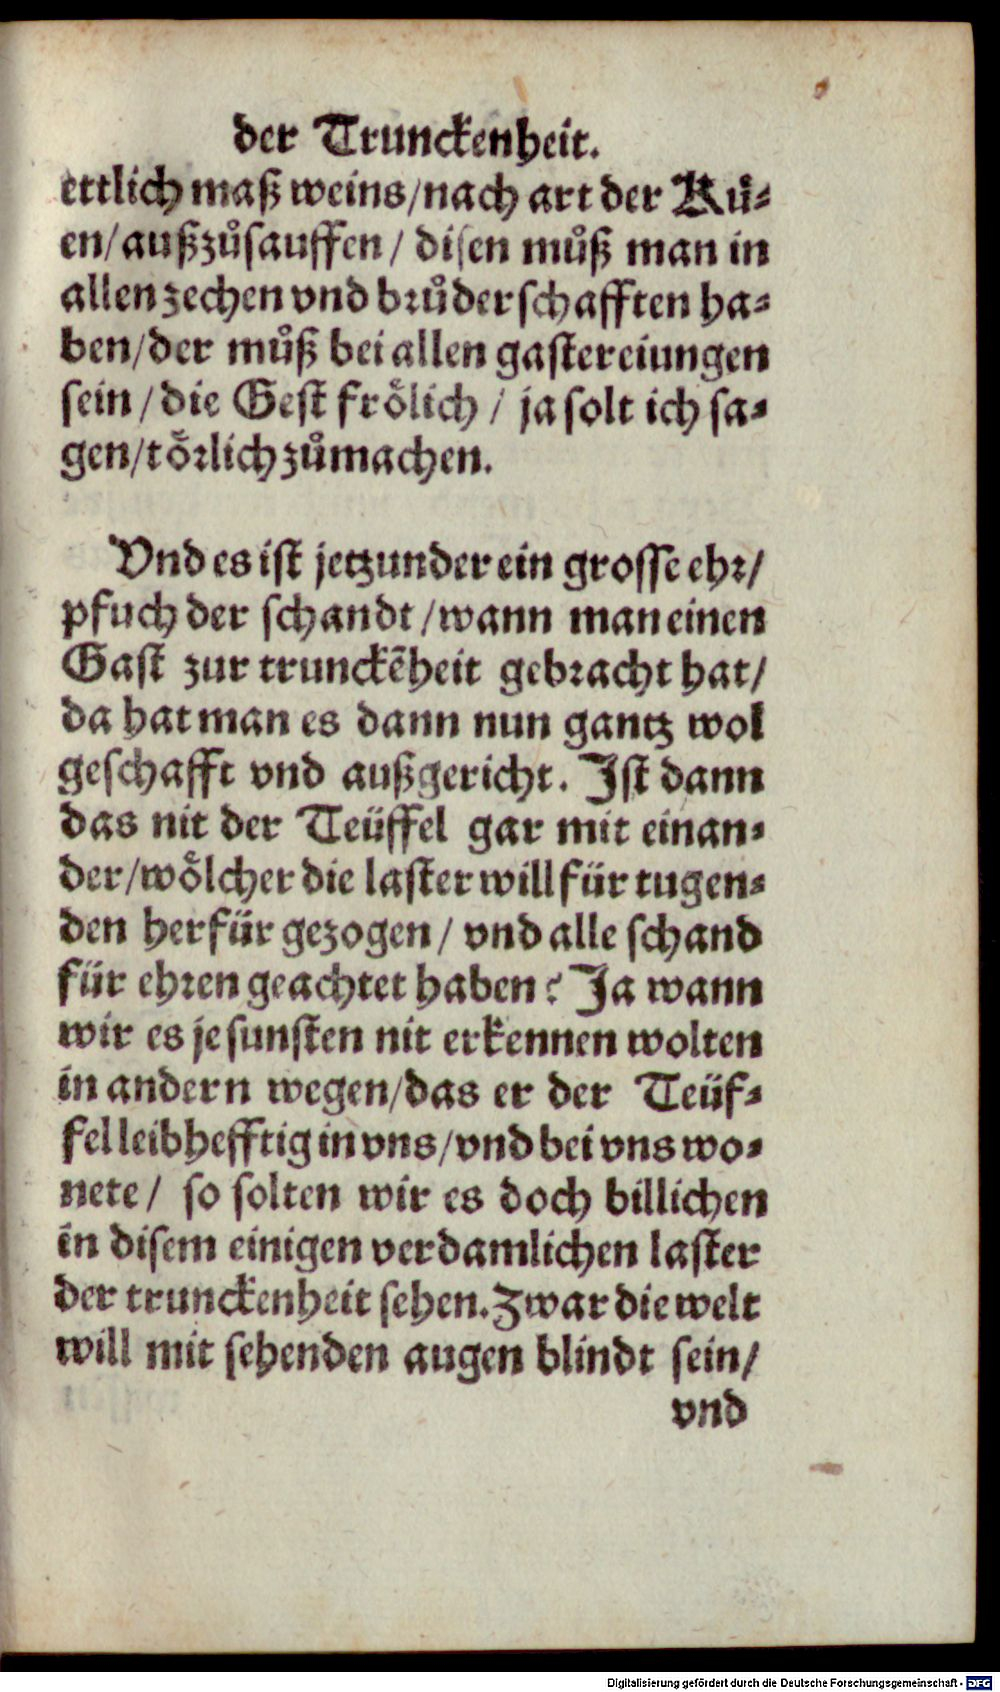 der Trunckenheit.
ettlich maß weins/nach art der Kuͤ-
en/außzuͦsauffen/ disen muͦß man in
allen zechen vnd bruͦderschafften ha-
ben/der muͦß bei allen gastereiungen
sein/die Gest froͤlich/ ja solt ich sa-
gen/toͤrlich zuͦmachen.
Vnd es ist jetzunder ein grosse ehr/
pfuch der schandt/wann man einen
Gast zur trunckēheit gebracht hat/
da hat man es dann nun gantz wol
geschafft vnd außgericht. Ist dann
das nit der Teüffel gar mit einan-
der/woͤlcher die laster will für tugen-
den herfür gezogen/ vnd alle schand
für ehren geachtet haben? Ja wann
wir es je sunsten nit erkennen wolten
in andern wegen/das er der Teüf-
fel leibhefftig in vns/vnd bei vns wo-
nete/ so solten wir es doch billichen
in disem einigen verdamlichen laster
der trunckenheit sehen. Zwar die welt
will mit sehenden augen blindt sein/
vnd
Digitalisierung gefördert durch die Deutsche Forschungsgemeinschaft - DFG